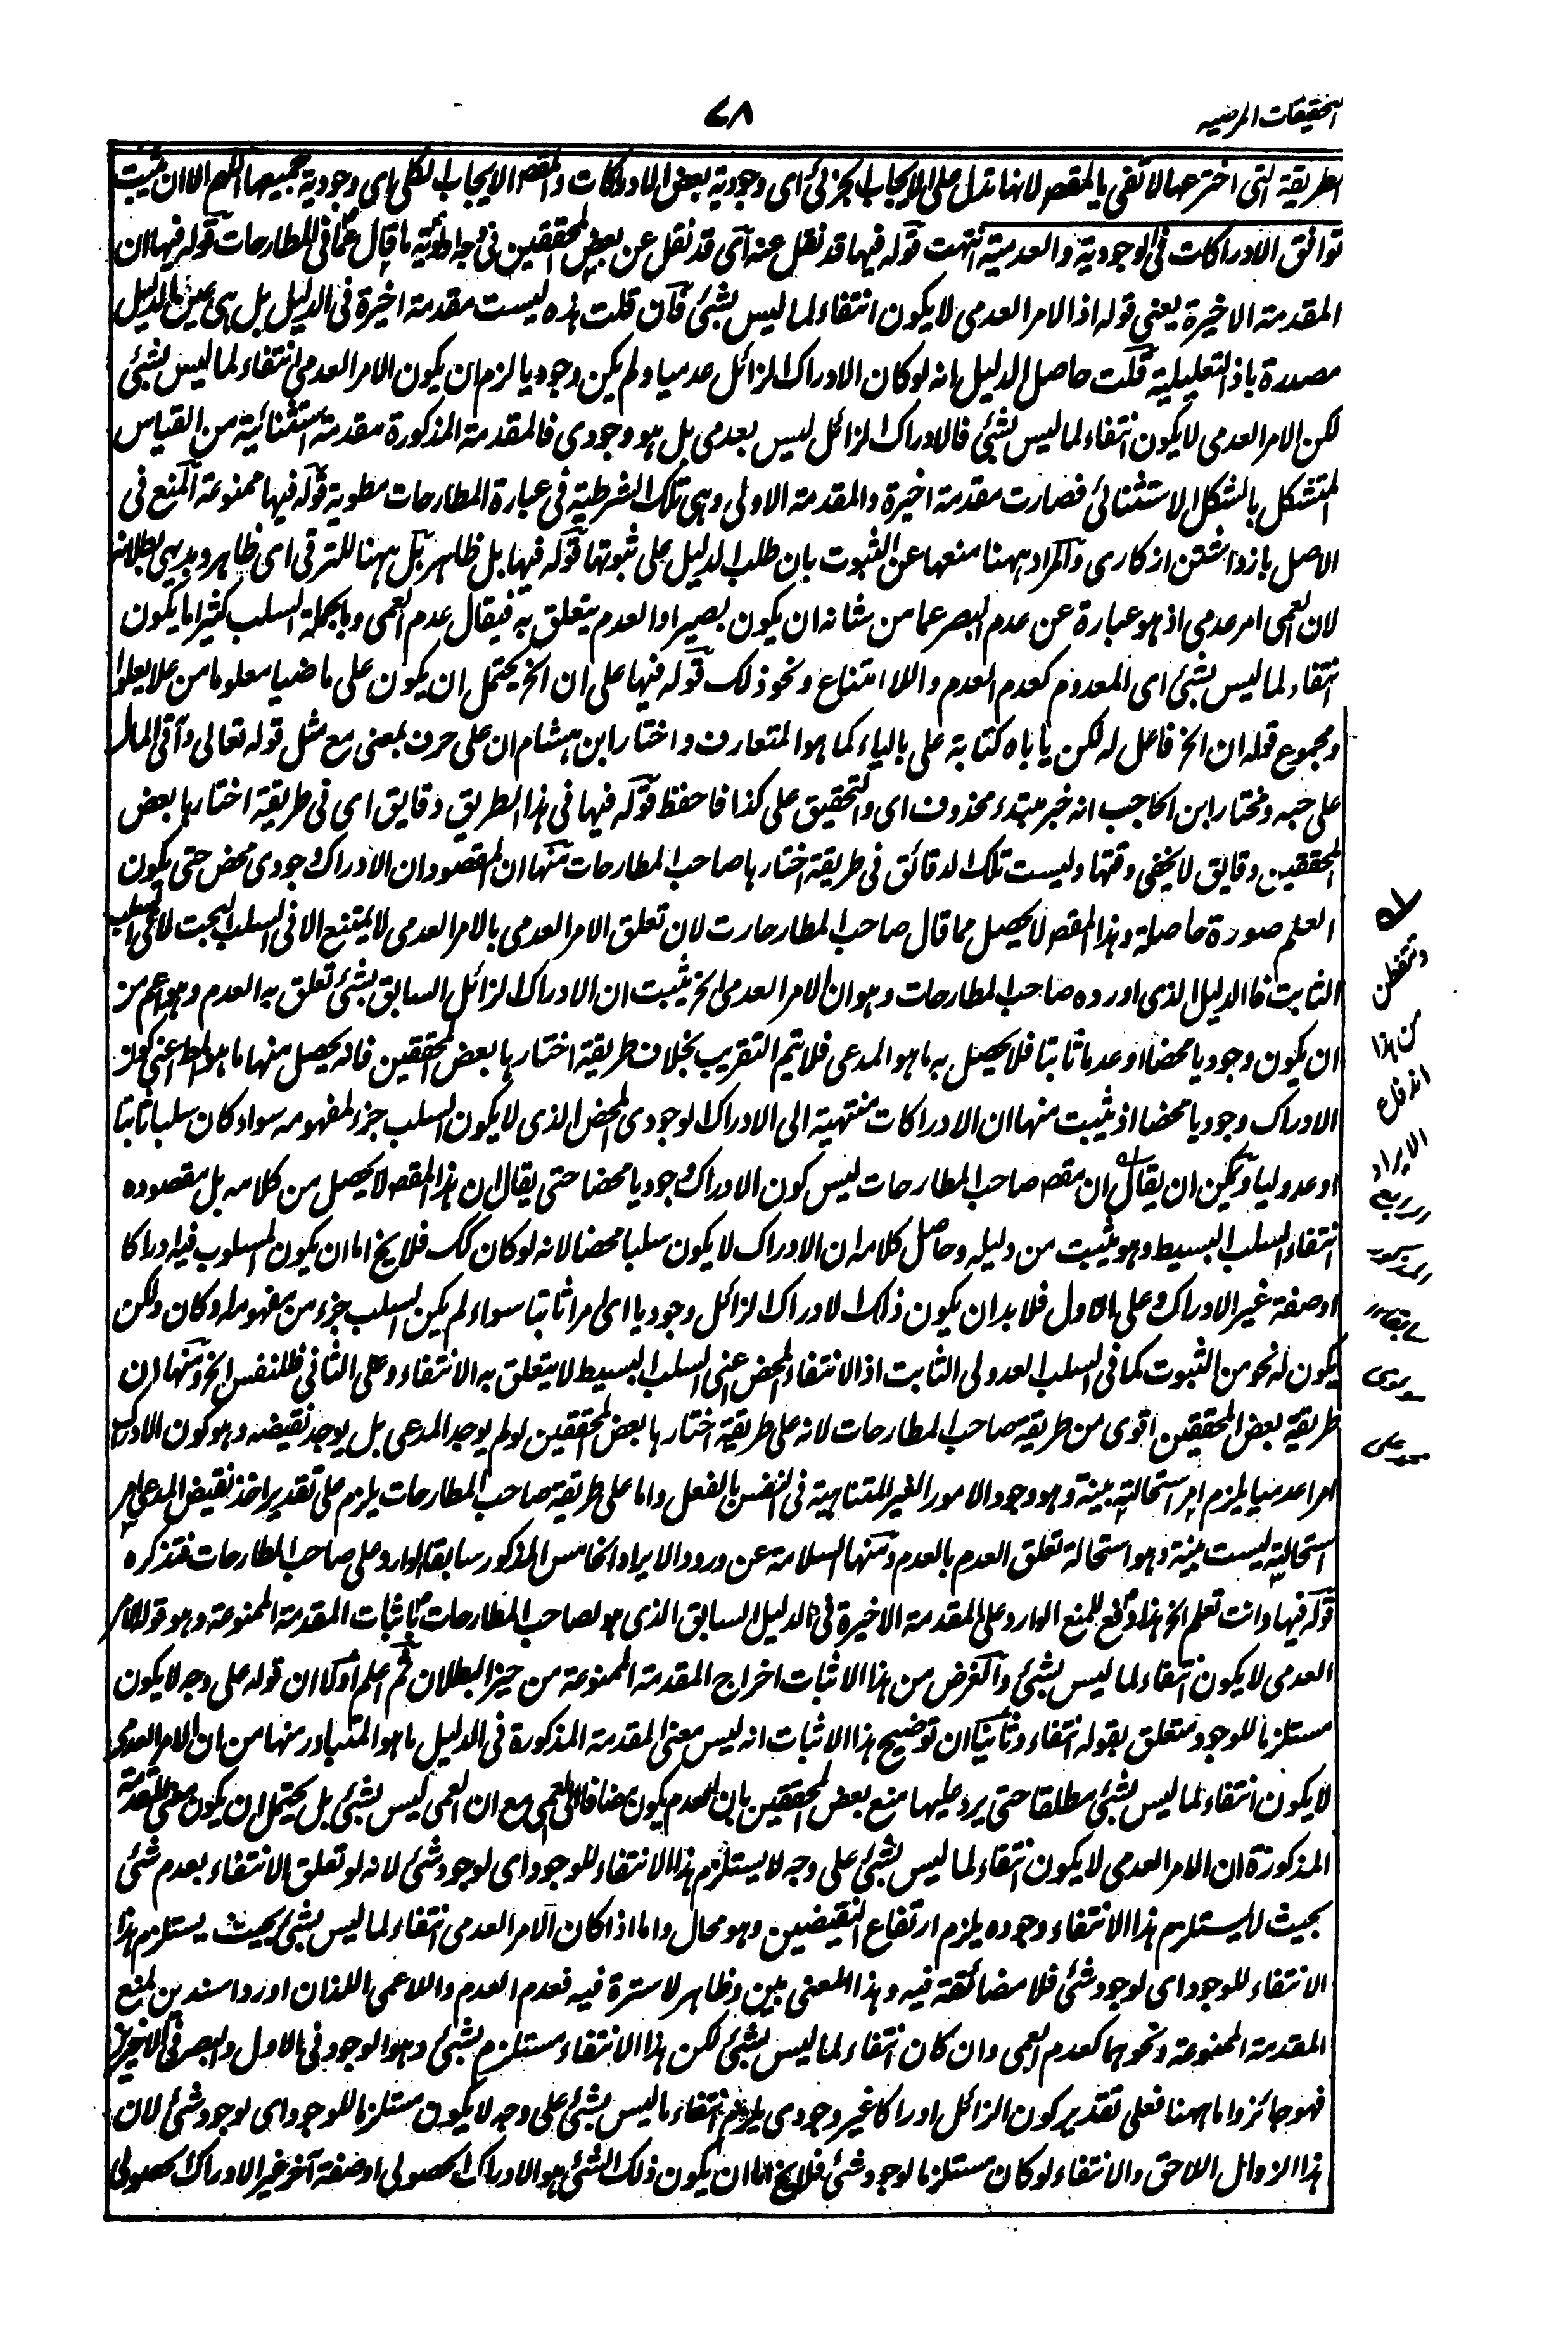 التحقيقات المرضيه
٧٨
الطريقة التى اخترعها لا تفى بالمقصد لانها تدل على الايجاب الجزئى اى وجودية بعض الادراكات والمقصد الايجاب الكلى اى وجودية جميعها اللهم الا ان يثبت
توافق الادراكات فى الوجودية والعدمية انتهت قوله فيها قد نقل عنه آى قد نقل عن بعض المحققين فى وجه اولوية ما قال عما فى المطارحات قوله فيها ان
المقدمة الاخيرة يعنى قوله اذ الامر العدمى لا يكون انتفاء لما ليس بشئ فان قلت هذه ليست مقدمة اخيرة فى الدليل بل هى عين الدليل
مصدرة باذ التعليلية قلت حاصل الدليل انه لو كان الادراك الزائل عدميا ولم يكن وجوديا لزم ان يكون الامر العدمى انتفاء لما ليس بشئ
لكن الامر العدمى لا يكون انتفاء لما ليس بشئ فالادراك الزائل ليس بعدمى بل هو وجودى فالمقدمة المذكورة مقدمة استثنائية من القياس
المتشكل بالشكل الاستثنائى فصارت مقدمة اخيرة والمقدمة الاولى وهى تلك الشرطية فى عبارة المطارحات مطوية قوله فيها ممنوعة المنع فى
الاصل بازداشتن از كارى والمراد ههنا منعها عن الثبوت بان طلب الدليل على ثبوتها قوله فيها بل ظاهر بل ههنا للترقى اى ظاهر وبديهى بطلانها
لان العمى امر عدمى اذ هو عبارة عن عدم البصر عما من شانه ان يكون بصيرا والعدم يتعلق به فيقال عدم العمى وبالجملة السلب كثيرا ما يكون
انتفاء لما ليس بشئ اى المعدوم كعدم العدم واللا امتناع ونحو ذلك قوله فيها على ان الخ يحتمل ان يكون على ماضيا معلوما من علا يعلو
ومجموع قوله ان الخ فاعل له لكن ياباه كتابة على بالياء كما هو المتعارف واختار ابن هشام ان على حرف بمعنى مع مثل قوله تعالى وآتى المال
على حبه ومختار ابن الحاجب انه خبر مبتدء محذوف اى والتحقيق على كذا فاحفظ قوله فيها فى هذا الطريق دقايق اى فى طريقة اختارها بعض
المحققين دقايق لا يخفى دقتها وليست تلك الدقائق فى طريقة اختارها صاحب المطارحات منها ان المقصود ان الادراك وجودى محض حتى يكون
العلم صورة حاصلة وهذا المقصد لا يحصل مما قال صاحب المطارحارت لان تعلق الامر العدمى بالامر العدمى لا يمتنع الا فى السلب البحت لا فى السلب
الثابت فالدليل الذى اورده صاحب المطارحات وهو ان الامر العدمى الخ يثبت ان الادراك الزائل السابق بشئ تعلق به العدم وهو اعم من
ان يكون وجوديا محضا او عدما ثابتا فلا يحصل به ما هو المدعى فلا يتم التقريب بخلاف طريقة اختارها بعض المحققين فانه يحصل منها ما هو المط اعنى كون
الادراك وجوديا محضا اذ يثبت منها ان الادراكات منتهية الى الادراك الوجودى المحض الذى لا يكون السلب جزء لمفهومه سواء كان سلبا ثابتا
او عدوليا ويمكن ان يقال ان مقصد صاحب المطارحات ليس كون الادراك وجوديا محضا حتى يقال ان هذا المقصد لا يحصل من كلامه بل مقصوده
انتفاء السلب البسيط وهو يثبت من دليله وحاصل كلامه ان الادراك لا يكون سلبا محضا لانه لو كان كك فلا يخ اما ان يكون المسلوب فيه ادراكا
او صفة غير الادراك وعلى الاول فلا بد ان يكون ذلك الادراك الزائل وجوديا اى امرا ثابتا سواء لم يكن السلب جزء من مفهومه او كان ولكن
يكون له نحو من الثبوت كما فى السلب العدولى الثابت اذ الانتفاء المحض اعنى السلب البسيط لا يتعلق به الانتفاء وعلى الثانى فللنفس الخ ومنها ان
طريقة بعض المحققين اقوى من طريقة صاحب المطارحات لانه على طريقة اختارها بعض المحققين لو لم يوجد المدعى بل يوجد نقيضه وهو كون الادراك
امرا عدميا يلزم امر استحالته بينة وهو وجود الامور الغير المتناهية فى النفس بالفعل واما على طريقة صاحب المطارحات يلزم على تقدير اخذ نقيض المدعى امر
استحالته ليست بينة وهو استحالة تعلق العدم بالعدم ومنها السلامة عن ورود الايراد الخامس المذكور سابقا الوارد على صاحب المطارحات فتذكره
قوله فيها وانت تعلم الخ هذا دفع للمنع الوارد على المقدمة الاخيرة فى الدليل السابق الذى هو لصاحب المطارحات باثبات المقدمة الممنوعة وهو قوله الامر
العدمى لا يكون انتفاء لما ليس بشئ والغرض من هذا الاثبات اخراج المقدمة الممنوعة من حيز البطلان ثم اعلم اولا ان قوله على وجه لا يكون
مستلزما للوجود متعلق بقوله انتفاء وثانيا ان توضيح هذا الاثبات انه ليس معنى المقدمة المذكورة فى الدليل ما هو المتبادر منها من ان الامر العدمى
لا يكون انتفاء لما ليس بشئ مطلقا حتى يرد عليها منع بعض المحققين بان العدم يكون مضافا الى العمى مع ان العمى ليس بشئ بل يحتمل ان يكون معنى المقدمة
المذكورة ان الامر العدمى لا يكون انتفاء لما ليس بشئ على وجه لا يستلزم هذا الانتفاء للوجود اى لوجود شئ لانه لو تعلق الانتفاء بعدم شئ
بحيث لا يستلزم هذا الانتفاء وجوده يلزم ارتفاع النقيضين وهو محال واما اذا كان الامر العدمى انتفاء لما ليس بشئ بحيث يستلزم هذا
الانتفاء للوجود اى لوجود شئ فلا مضائقة فيه وهذا المعنى بين وظاهر لا سترة فيه فعدم العدم واللاعمى اللذان اوردا سندين لمنع
المقدمة الممنوعة ونحوهما كعدم العمى وان كان انتفاء لما ليس بشئ لكن هذا الانتفاء مستلزم بشئ وهو الوجود فى الاول والبصر فى الاخيرين
فهو جائز واما ههنا فعلى تقدير كون الزائل ادراكا غير وجودى يلزم انتفاء ما ليس بشئ على وجه لا يكون مستلزما للوجود اى لوجود شئ لان
هذا الزوائل اللاحق والانتفاء لو كان مستلزما لوجود شئ فلا يخ اما ان يكون ذلك الشئ هو الادراك الحصولى او صفة آخر غير الادراك الحصولى
وتنفطن
من هذا
اندفاع
الايراد
الرابع
المذكور
سابقا